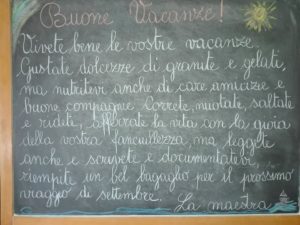 Buone Vacanze!
Vivete bene le vostre vacanze.
Gustate dolcezze di granite e gelati,
ma nutritevi anche di care amicizie e
buone compagnie. Correte, nuotate, saltate
e ridete, afferrate la vita con la gioia
della vostra fanciullezza, ma leggete
anche e scrivete e documentatevi,
riempite un bel bagaglio per il prossimo
viaggio di settembre. La maestra